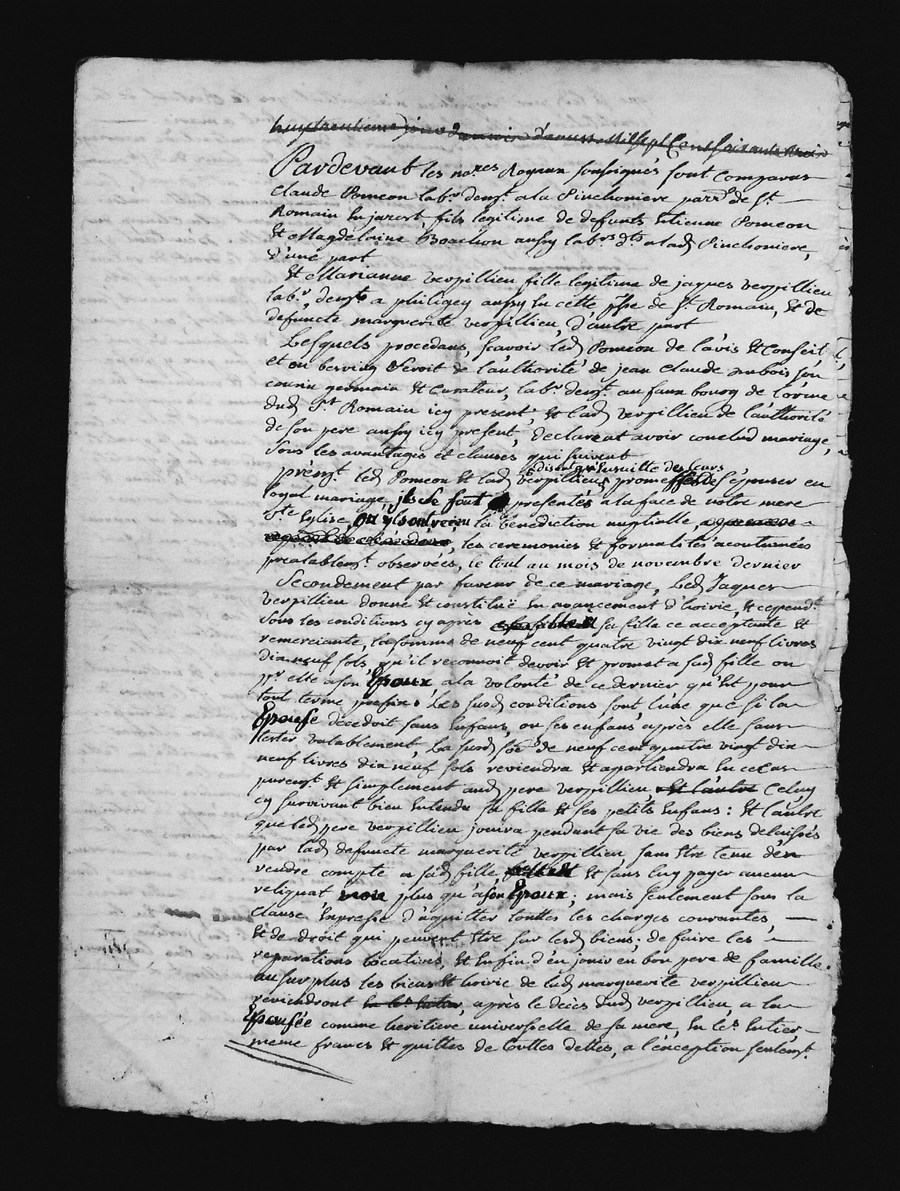 huytrentieme jour du mois de mars Mil sept Cent soixante trois
Pardevant les no.res Royaux soussignés sont comparus
Claude Pomeon lab.r deng.t a la Pinchoniere parr.e de S.t
Romain en jarest, fils legitime de defunts Estienne Pomeon
Et Magdelaine Boachon aussy lab.rs d.ts a lad. Pinchoniere,
d'une part
Et Marianne verpillieu fille legitime de jaques verpillieu
lab.r, deng.t a philigey aussy En cette p.sse de S.t Romain, Et de
defuncte marguerite verpillieu, d'autre part
Lesquels procedans, scavoir led. Pomeon de l'avis Et Conseil
et en de l'authorité de jean Claude dubois son
cousin germain Et Curateur, lab.r deng.t au faux bourg de l'orme
dud. S.t Romain icy present, Et lad. verpillieu de l'authorité
de son pere aussy icy present, declarent avoir conclud mariage,
sous les avantages et clauses qui suivent
Ensuitte des leurs
led. Pomeon et lad. verpillieu promesses de s'épouser en
loyal mariage, ils se sont presentés a la face de notre mere
s.te Eglise, ou ils ont recu la benediction nuptialle,
les ceremonies Et formalités acoutumées
prealablem.t observées, le tout au mois de novembre dernier
Secondement par faveur de ce mariage, led. Jaques
verpillieu donne Et constitüe En avancement d'hoirie, Et cepend.t
sous les conditions cy après a sa fille ce acceptante Et
remerciante, la somme de neuf cent quatre vingt dix neuf livres
dix neuf sols, qu'il reconnoit devoir Et promet a sad. fille ou
p.r elle a son Epoux a la volonté de ce dernier qu'Est pour
tout terme prefix: Les susd. conditions sont l'une que si la
Epouse decedoit sans Enfans, ou ses enfans après elle sans
tester valablement, La susd. so.e de neuf cent quatre vingt dix
neuf livres dix neuf sols reviendra et apartiendra En ce cas
purem.t Et simplement aud. pere verpillieu, Et l'autre Celuy
cy survivant bien Entendu sa fille Et ses petits Enfans: Et l'autre
que led. pere verpillieu jouira pendant sa vie des biens delaissés
par lad. defuncte marguerite verpillieu sans Etre tenu d'en
rendre compte a sad. fille Et sans luy payer aucun
reliquat non plus qu'a son Epoux; mais seulement sous la
clause Expresse d'aquitter touttes les charges courantes,
Et de droit qui peuvent Etre sur lesd. biens; de faire les
reparations locatives, Et Enfin d'en jouir en bon pere de famille.
au surplus les biens Et hoirie de lad. marguerite verpillieu
reviendront En l'. Entier, après le deces dud. verpillieu, a la
Epousée comme heritiere universelle de sa mere, En l'. Entier
meme francs Et quittes de touttes dettes, a l'exception seulem.t